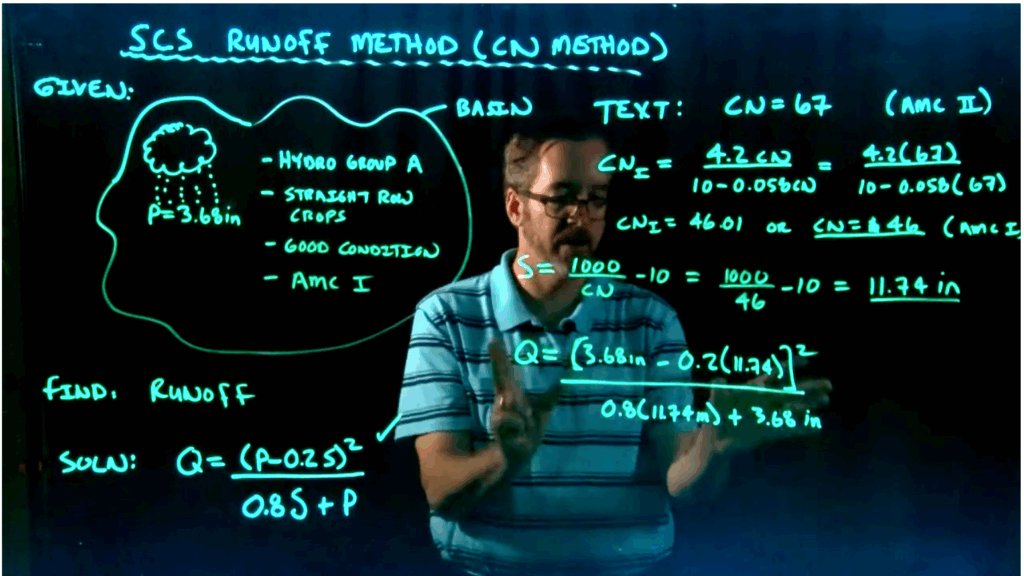 SCS RUNOFF METHOD (CN METHOD)
GIVEN:
BASIN
P=3.68in
- HYDRO GROUP A
- STRAIGHT ROW
CROPS
- GOOD CONDITION
- AMC I
FIND: RUNOFF
SOLN: Q = (P-0.2S)² / 0.8S + P
TEXT: CN = 67 (AMC II)
CN_I = 4.2CN / 10-0.058CN = 4.2(67) / 10-0.058(67)
CN_I = 46.01 OR CN = 46 (AMC I
S = 1000 / CN -10 = 1000 / 46 -10 = 11.74 in
Q = [3.68in - 0.2(11.74)]² / 0.8(11.74in) + 3.68 in